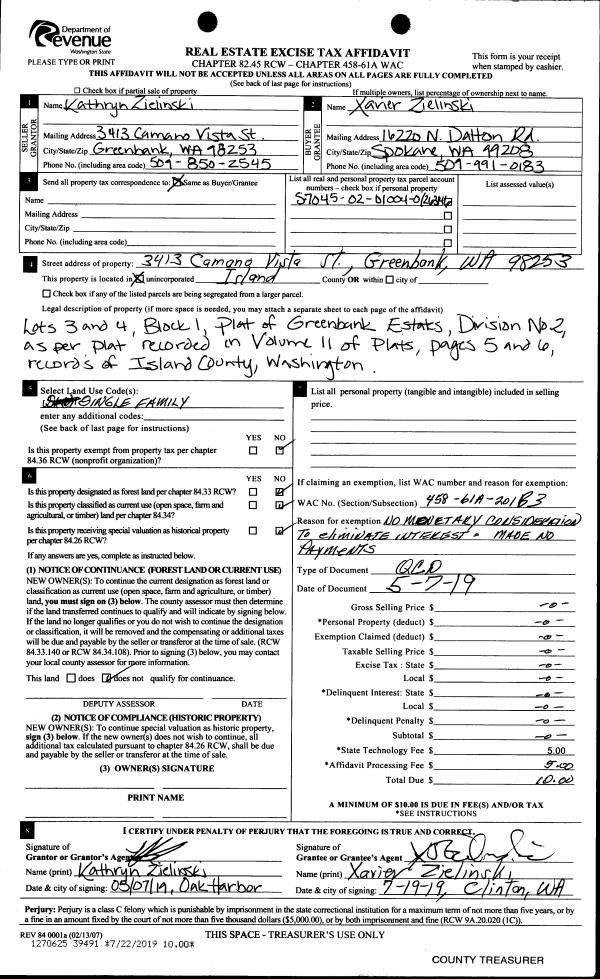 Department of
Revenue
Washington State
PLEASE TYPE OR PRINT
REAL ESTATE EXCISE TAX AFFIDAVIT
CHAPTER 82.45 RCW – CHAPTER 458-61A WAC
This form is your receipt
when stamped by cashier.
THIS AFFIDAVIT WILL NOT BE ACCEPTED UNLESS ALL AREAS ON ALL PAGES ARE FULLY COMPLETED
(See back of last page for instructions)
Check box if partial sale of property
If multiple owners, list percentage of ownership next to name.
1
SELLER
GRANTOR
Name Kathryn Zielinski
Mailing Address 3413 Camano Vista St.
City/State/Zip Greenbank, WA 98253
Phone No. (including area code) 509-850-2545
2
BUYER
GRANTEE
Name Xavier Zielinski
Mailing Address 16220 N. Dalton Rd.
City/State/Zip Spokane, WA 99208
Phone No. (including area code) 509-991-0183
3
Send all property tax correspondence to: Same as Buyer/Grantee
Name
Mailing Address
City/State/Zip
Phone No. (including area code)
List all real and personal property tax parcel account
numbers – check box if personal property
S7045-02-01004-0
List assessed value(s)
4
Street address of property: 3413 Camano Vista St., Greenbank, WA 98253
This property is located in unincorporated Island County OR within city of
Check box if any of the listed parcels are being segregated from a larger parcel.
Legal description of property (if more space is needed, you may attach a separate sheet to each page of the affidavit)
Lots 3 and 4, Block 1, Plat of Greenbank Estats, Division No. 2,
as per plat recorded in Volume 11 of Plats, pages 5 and 6,
records of Island County, Washington.
5
Select Land Use Code(s):
SINGLE FAMILY
enter any additional codes:
(See back of last page for instructions)
YES NO
Is this property exempt from property tax per chapter
84.36 RCW (nonprofit organization)?
6
YES NO
Is this property designated as forest land per chapter 84.33 RCW?
Is this property classified as current use (open space, farm and
agricultural, or timber) land per chapter 84.34?
Is this property receiving special valuation as historical property
per chapter 84.26 RCW?
If any answers are yes, complete as instructed below.
(1) NOTICE OF CONTINUANCE (FOREST LAND OR CURRENT USE)
NEW OWNER(S): To continue the current designation as forest land or
classification as current use (open space, farm and agriculture, or timber)
land, you must sign on (3) below. The county assessor must then determine
if the land transferred continues to qualify and will indicate by signing below.
If the land no longer qualifies or you do not wish to continue the designation
or classification, it will be removed and the compensating or additional taxes
will be due and payable by the seller or transferor at the time of sale. (RCW
84.33.140 or RCW 84.34.108). Prior to signing (3) below, you may contact
your local county assessor for more information.
This land does does not qualify for continuance.
DEPUTY ASSESSOR DATE
(2) NOTICE OF COMPLIANCE (HISTORIC PROPERTY)
NEW OWNER(S): To continue special valuation as historic property,
sign (3) below. If the new owner(s) does not wish to continue, all
additional tax calculated pursuant to chapter 84.26 RCW, shall be due
and payable by the seller or transferor at the time of sale.
(3) OWNER(S) SIGNATURE
PRINT NAME
7
List all personal property (tangible and intangible) included in selling
price.
If claiming an exemption, list WAC number and reason for exemption:
WAC No. (Section/Subsection) 458-61A-201B3
Reason for exemption NO MONETARY CONSIDERATION
To eliminate interest - MADE NO
PAYMENTS
Type of Document QCD
Date of Document 5-7-19
Gross Selling Price $ -0-
*Personal Property (deduct) $ -0-
Exemption Claimed (deduct) $ -0-
Taxable Selling Price $ -0-
Excise Tax : State $ -0-
Local $ -0-
*Delinquent Interest: State $ -0-
Local $ -0-
*Delinquent Penalty $ -0-
Subtotal $ -0-
*State Technology Fee $ 5.00
*Affidavit Processing Fee $ 5.00
Total Due $ 10.00
A MINIMUM OF $10.00 IS DUE IN FEE(S) AND/OR TAX
*SEE INSTRUCTIONS
8
I CERTIFY UNDER PENALTY OF PERJURY THAT THE FOREGOING IS TRUE AND CORRECT.
Signature of
Grantor or Grantor's Agent
Name (print) Kathryn Zielinski
Date & city of signing: 05/07/19, Oak Harbor
Signature of
Grantee or Grantee's Agent
Name (print) Xavier Zielinski
Date & city of signing: 7-19-19, Clinton, WA
Perjury: Perjury is a class C felony which is punishable by imprisonment in the state correctional institution for a maximum term of not more than five years, or by
a fine in an amount fixed by the court of not more than five thousand dollars ($5,000.00), or by both imprisonment and fine (RCW 9A.20.020 (1C)).
REV 84 0001a (02/13/07)
THIS SPACE - TREASURER'S USE ONLY
1270625 39491 *7/22/2019 10.00*
COUNTY TREASURER